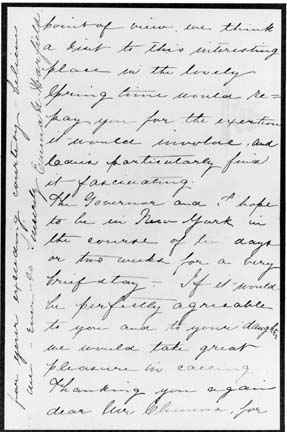 point of view. we think
a visit to this interesting
place in the lovely
Spring time would re=
pay you for the exertion
it would involve. and
ladies particularly find
it fascinating.
The Governor and I hope
to be in New York in
the course of ten days
or two weeks for a very
brief stay — If it would
be perfectly agreeable
to you and to your daughter
we would take great
pleasure in calling
Thanking you again
dear Mr Clemens, for
for your exceeding courtesy — believe
me — ever so sincerely Warfield